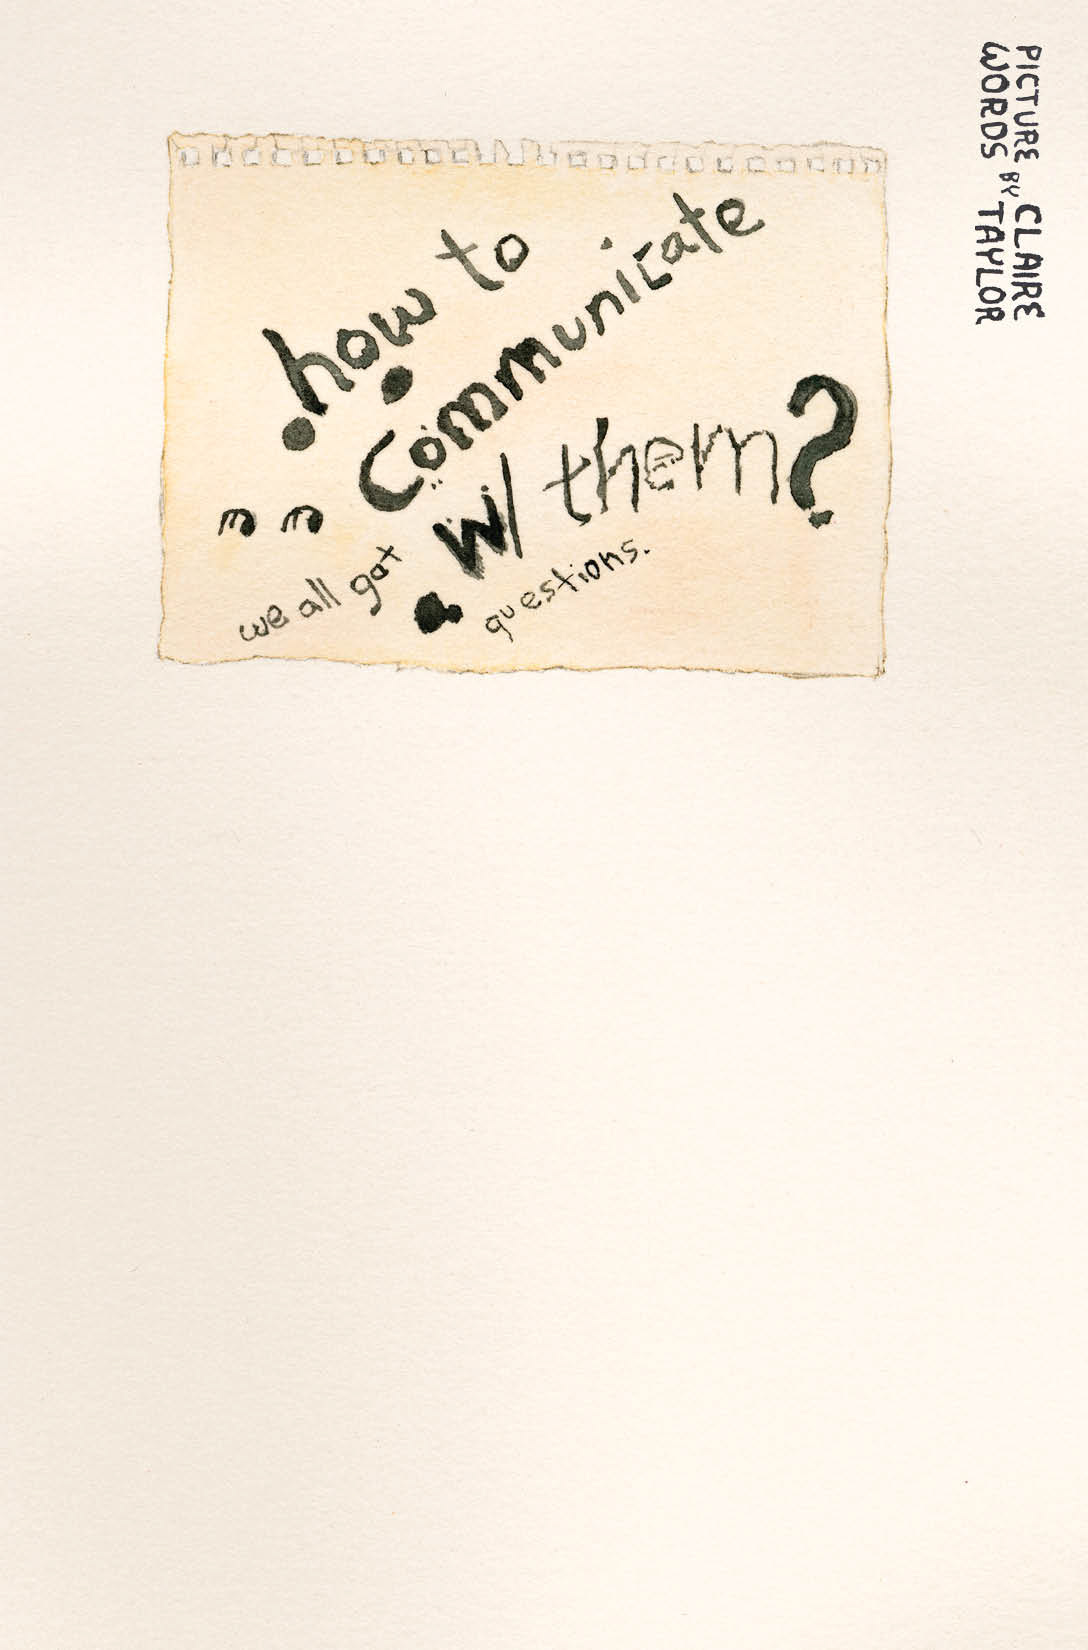 how to
communicate
w/ them?
we all got questions.
PICTURE BY CLAIRE
WORDS TAYLOR